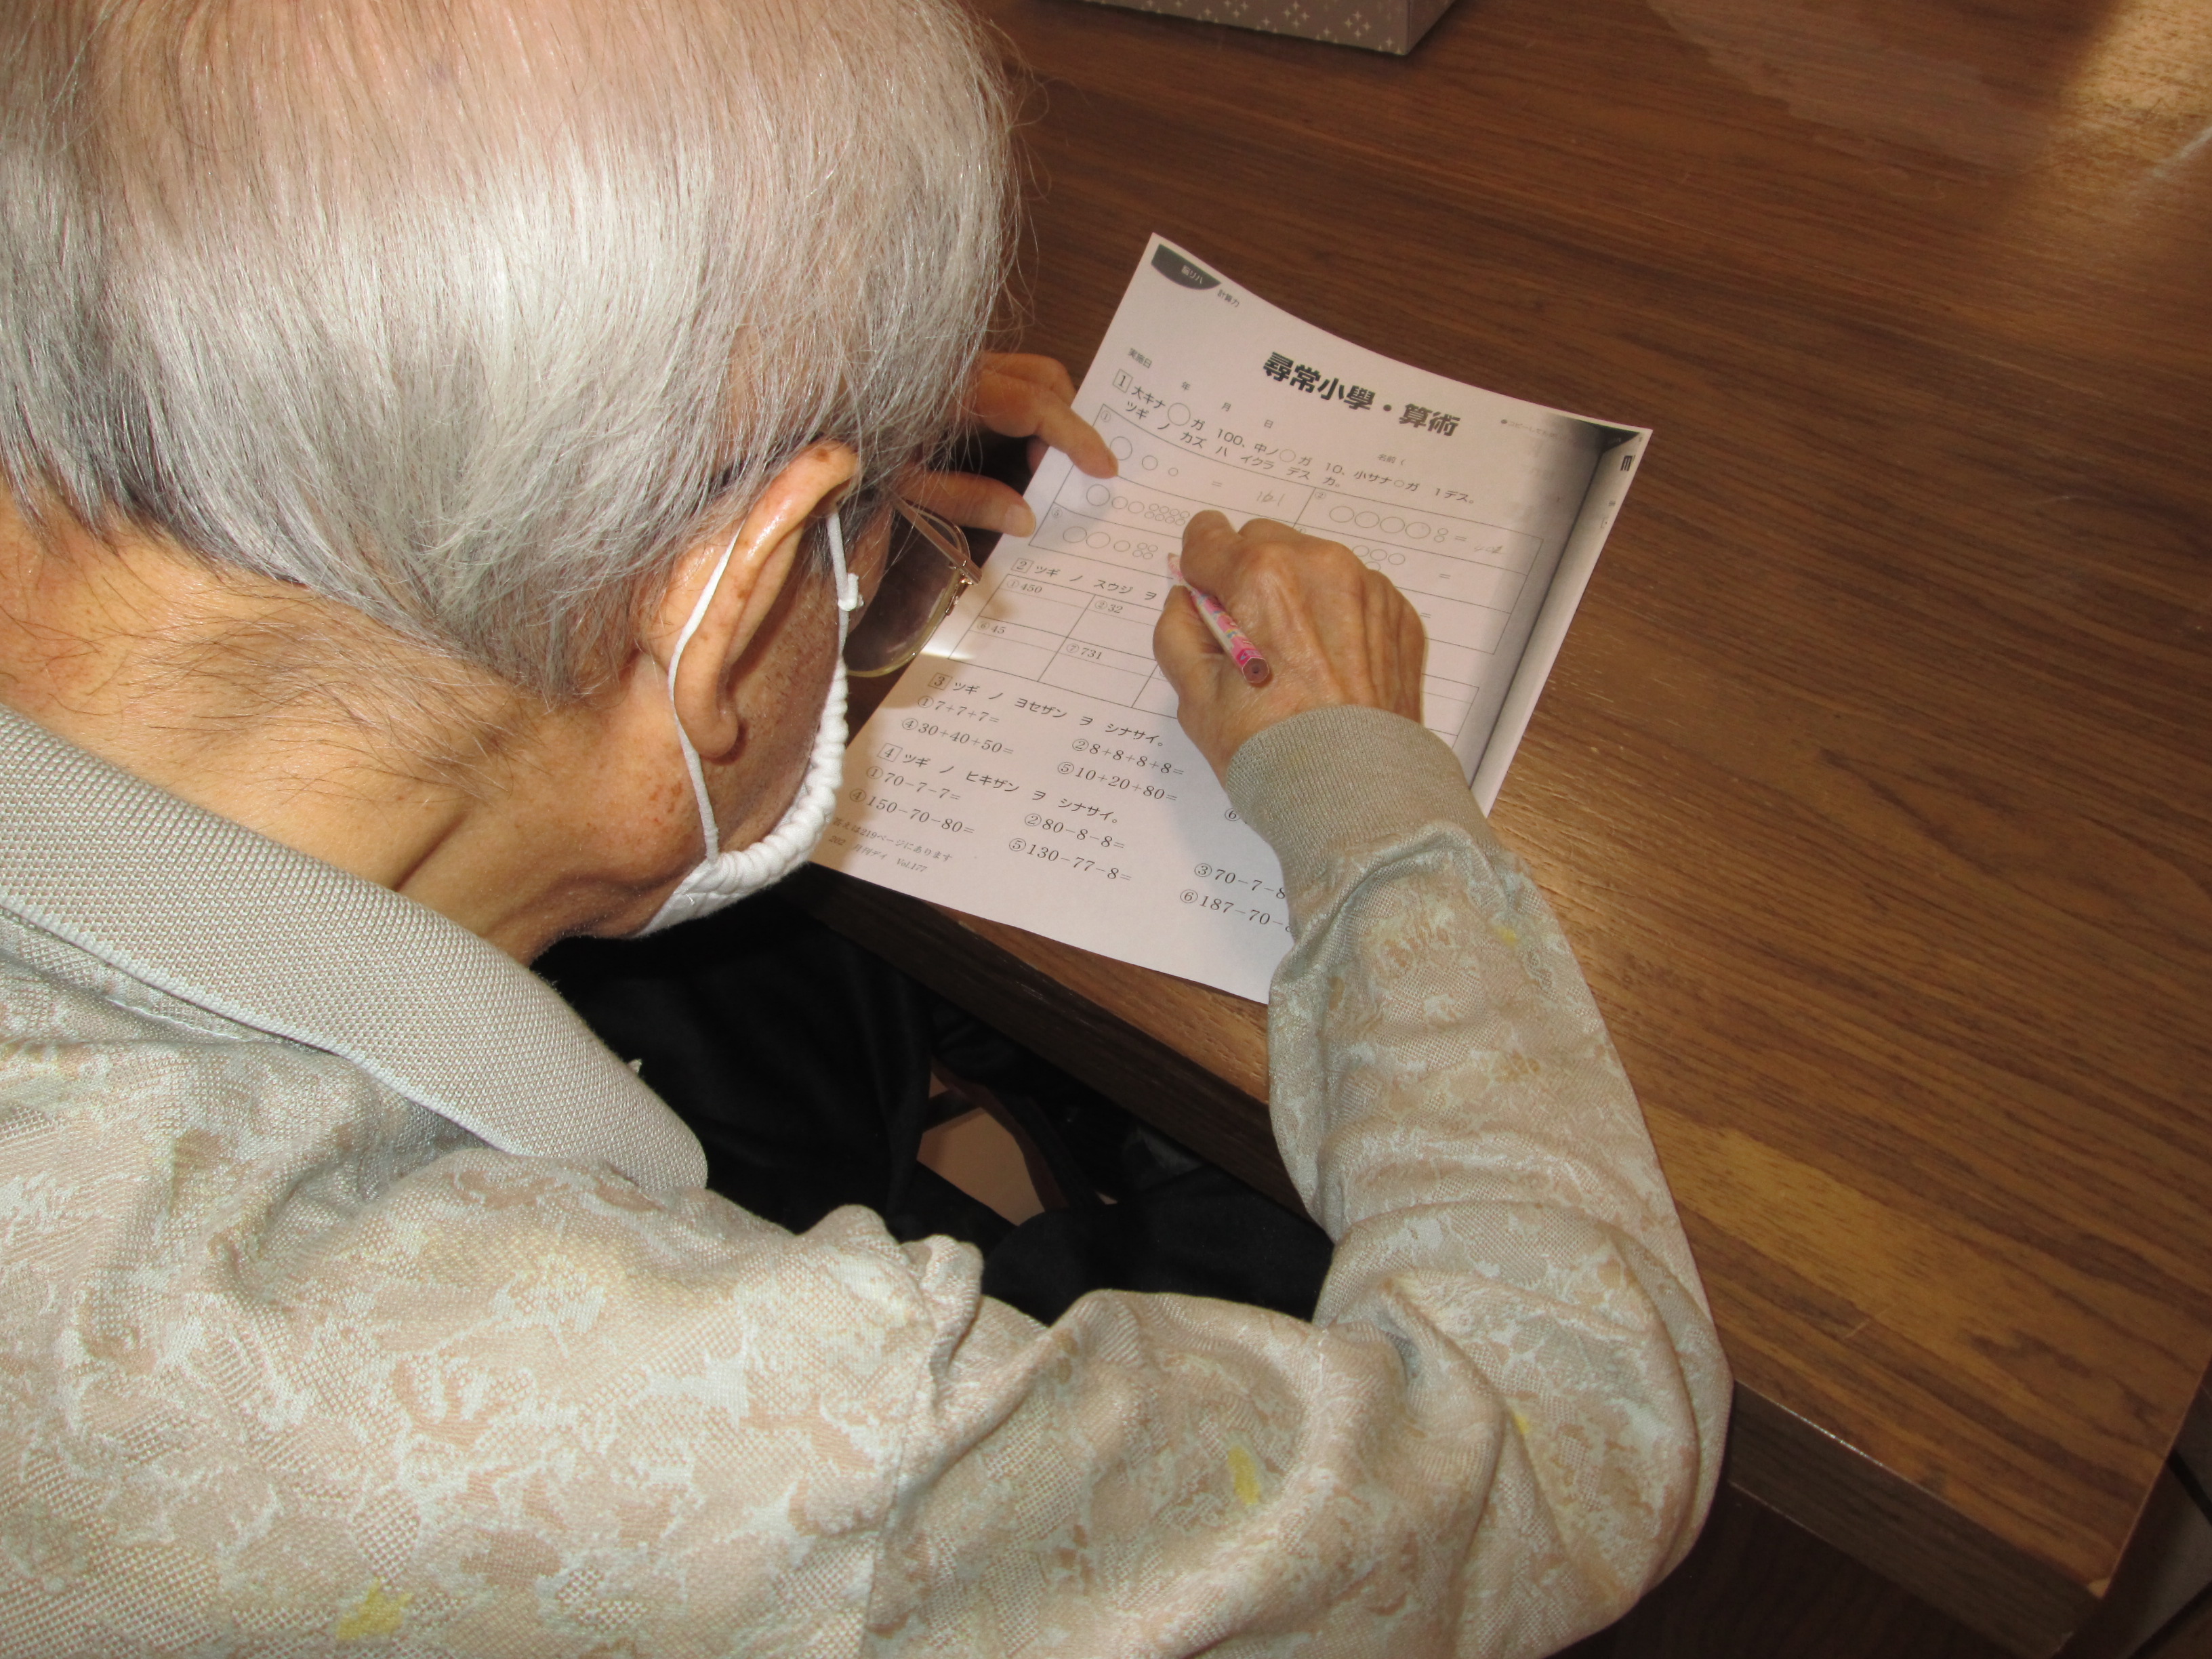 脳リハ 計算力
尋常小學・算術
実施日 年 月 日 名前（
1 大キナ○ガ 100、中ノ○ガ 10、小サナ○ガ 1デス。
ツギ ノ カズ ハ イクラ デス カ。
① = 101 ② =
=
=
2 ツギ ノ スウジ ヲ
①450 ②32
⑥45 ⑦731
3 ツギ ノ ヨセザン ヲ シナサイ。
①7+7+7= ②8+8+8+8=
④30+40+50= ⑤10+20+80= ⑥
4 ツギ ノ ヒキザン ヲ シナサイ。
①70−7−7= ②80−8−8= ③70−7−8
④150−70−80= ⑤130−77−8= ⑥187−70−
答えは219ページにあります
202 月刊デイ Vol.177